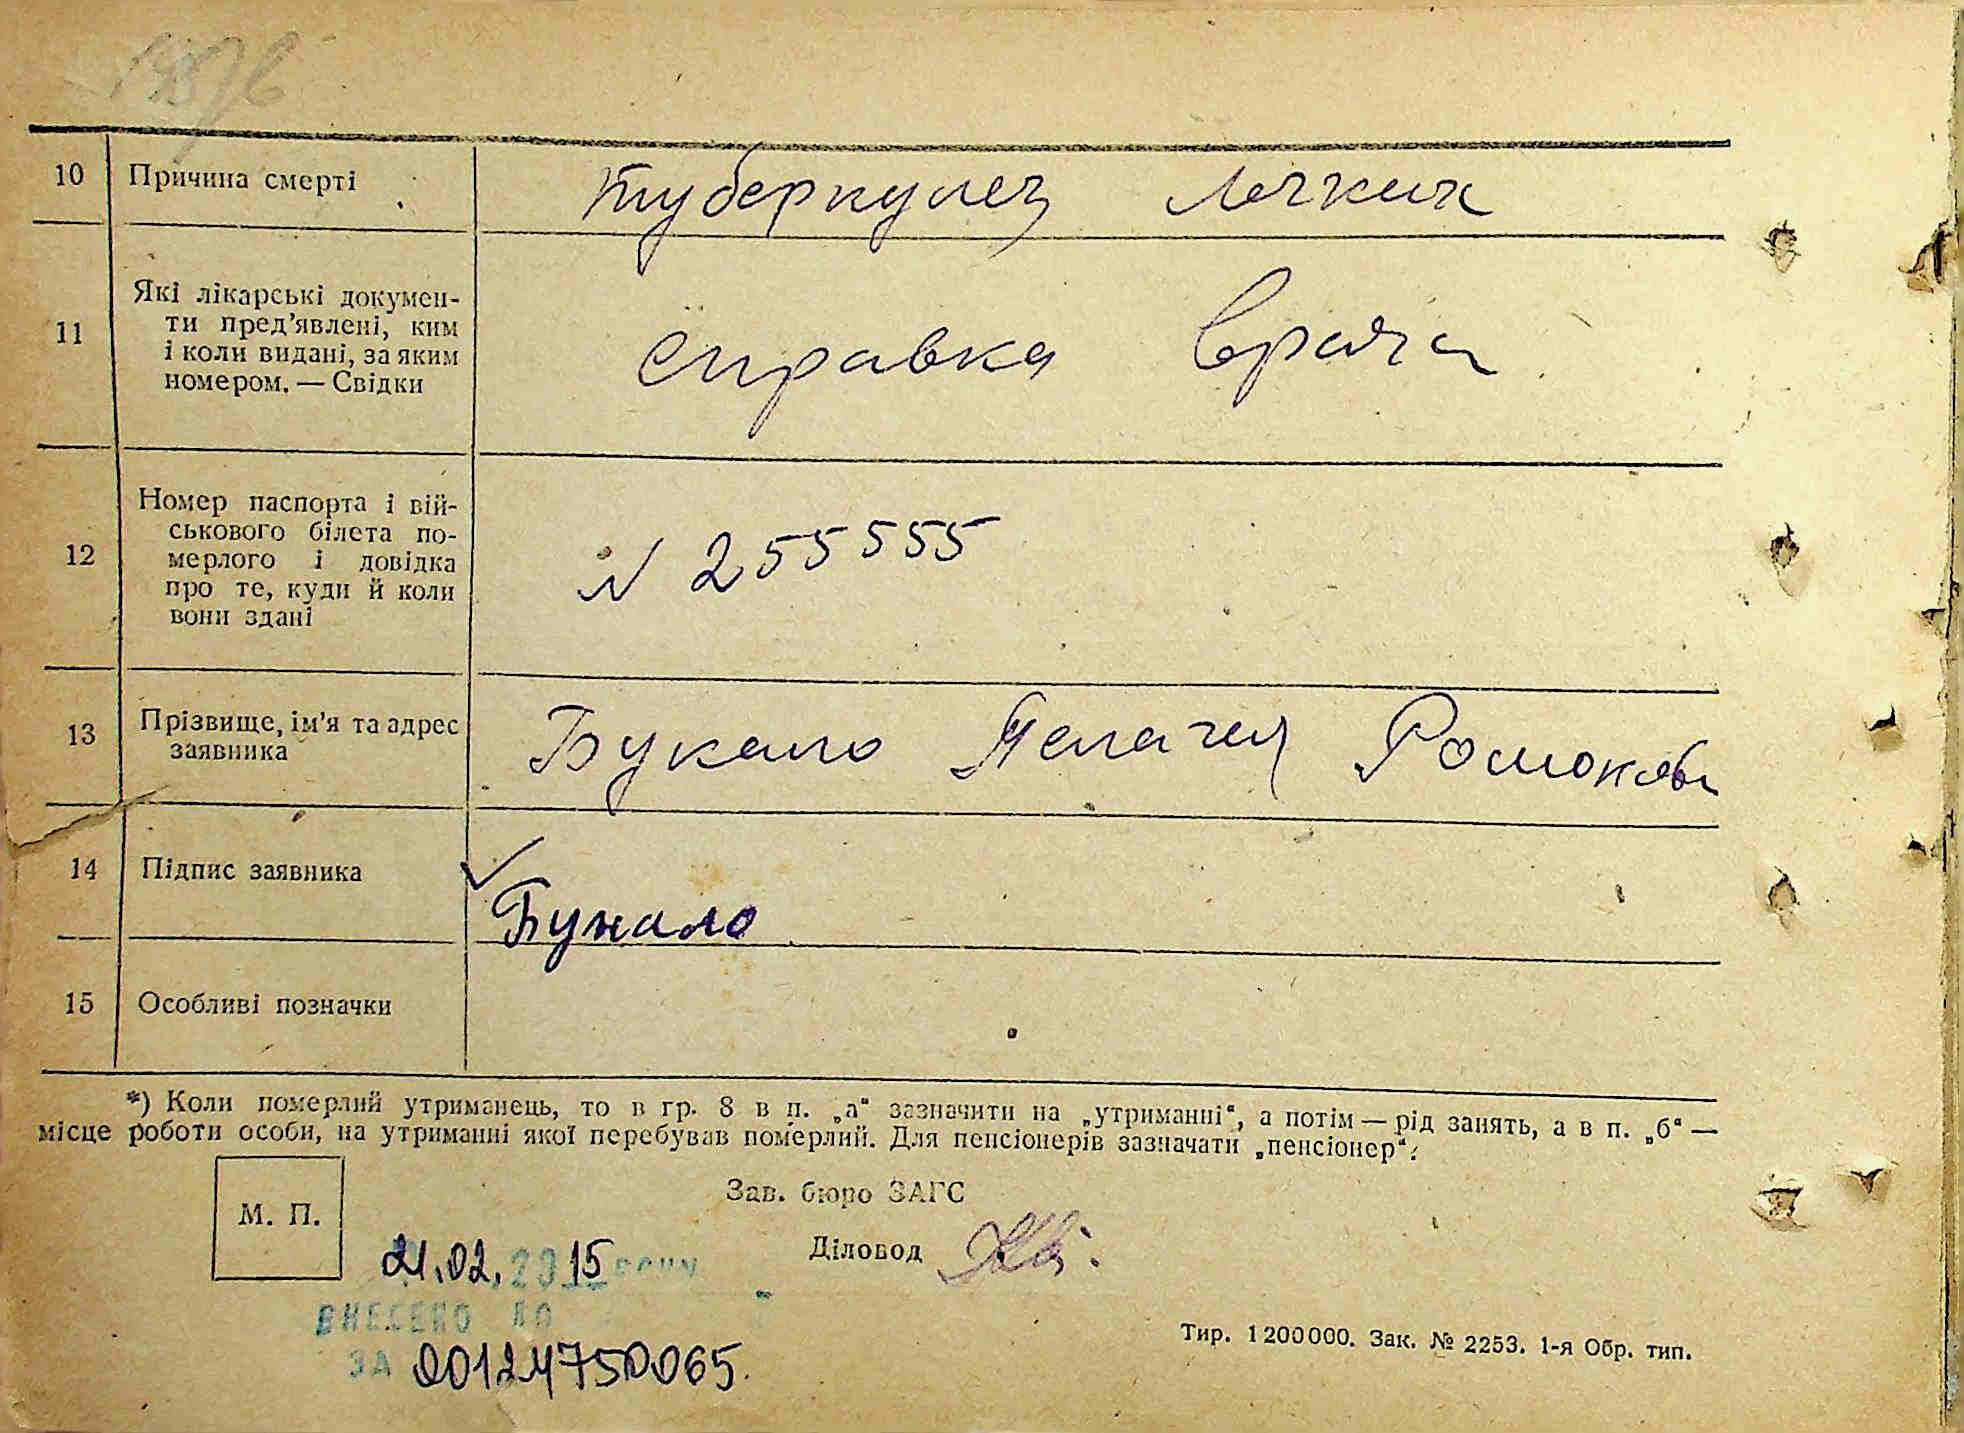 10 Причина смерті туберкулез легких
11 Які лікарські докумен-
ти пред'явлені, ким
і коли видані, за яким
номером. — Свідки
справка врача
12 Номер паспорта і вій-
ськового білета по-
мерлого і довідка
про те, куди й коли
вони здані
N 255555
13 Прізвище, ім'я та адрес
заявника
Букало Пелагея Романовн
14 Підпис заявника
Букало
15 Особливі позначки
*) Коли померлий утриманець, то в гр. 8 в п. „а“ зазначити на „утриманні“, а потім — рід занять, а в п. „б“ —
місце роботи особи, на утриманні якої перебував померлий. Для пенсіонерів зазначати „пенсіонер“.
М. П.
Зав. бюро ЗАГС
Діловод
21.02.2015 року
ВНЕСЕНО ДО
ЗА 00124750065.
Тир. 1200000. Зак. № 2253. 1-я Обр. тип.